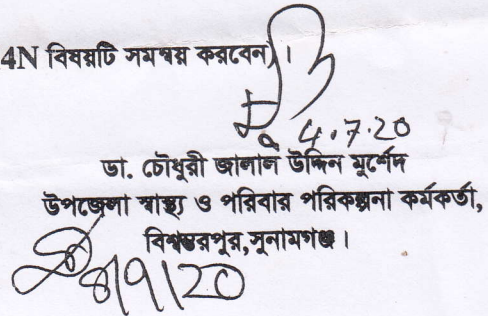 4N বিষয়টি সমন্বয় করবেন)।
4.7.20
ডা. চৌধুরী জালাল উদ্দিন মুর্শেদ
উপজেলা স্বাস্থ্য ও পরিবার পরিকল্পনা কর্মকর্তা,
বিশ্বম্ভরপুর,সুনামগঞ্জ।